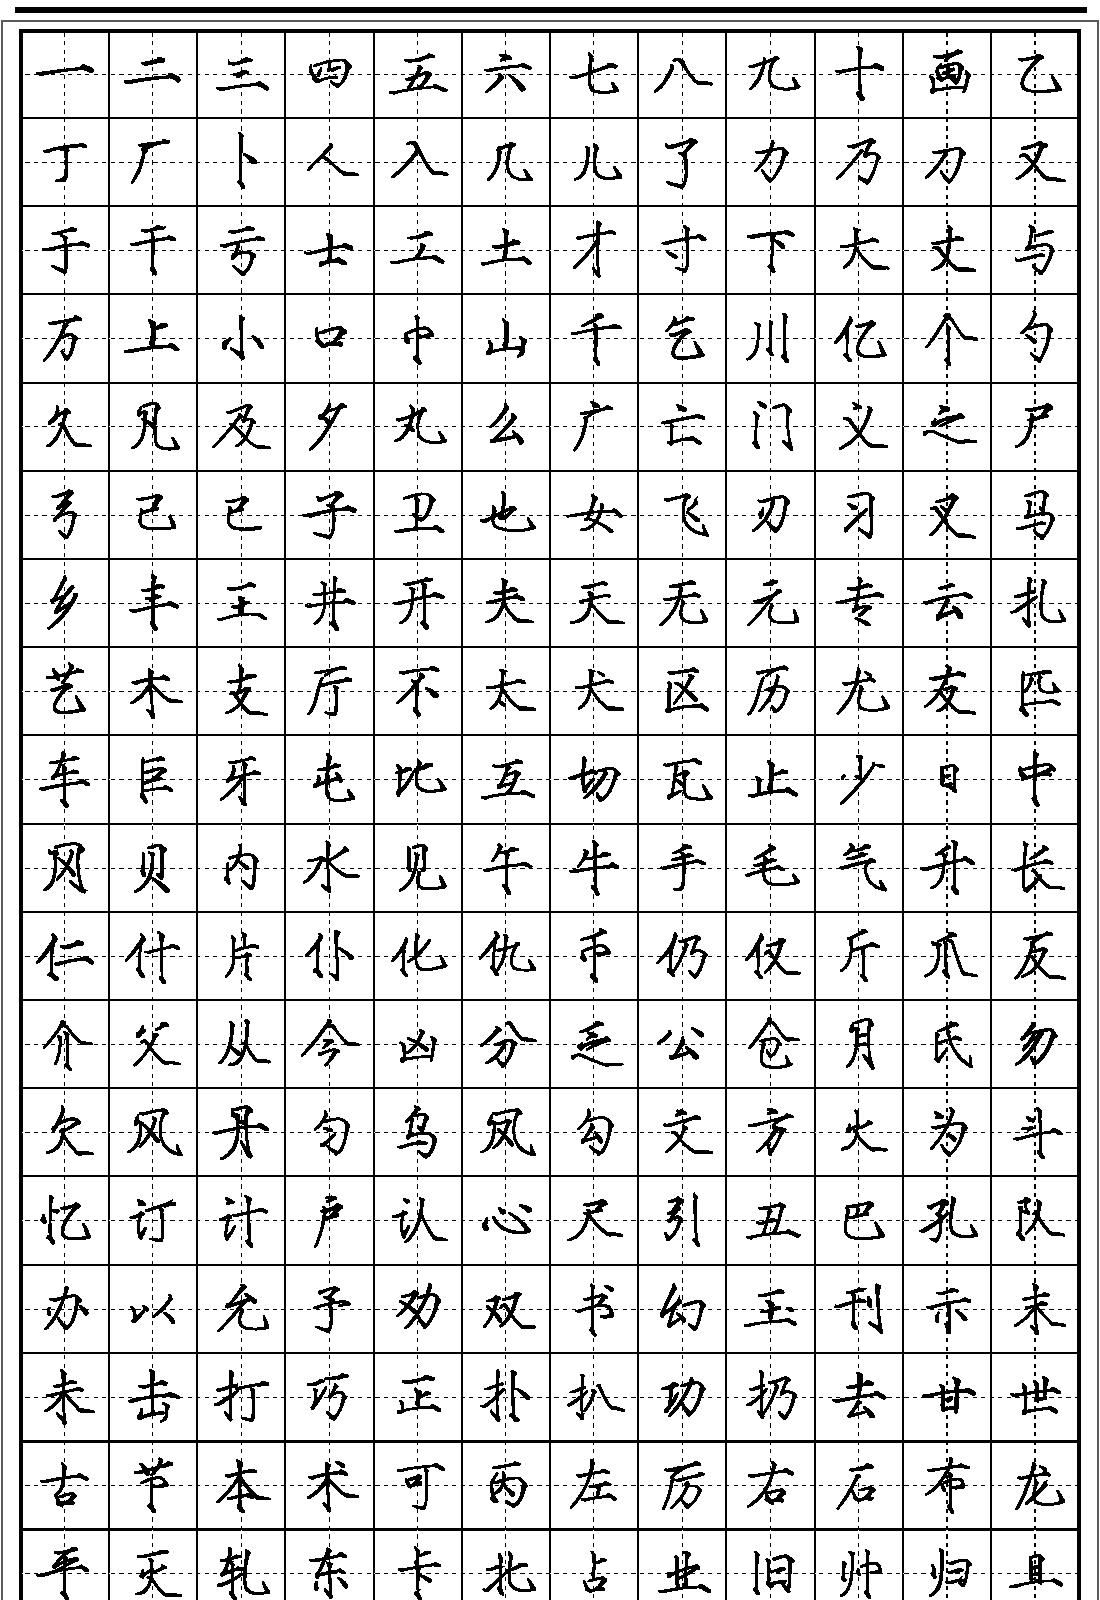 一二三四五六七八九十画乙
丁厂卜人入几儿了力乃刀又
于干亏士工土才寸下大丈与
万上小口巾山千乞川亿个勺
久凡及夕丸么广亡门义之尸
弓己已子卫也女飞刃习叉马
乡丰王井开夫天无元专云扎
艺木支厅不太犬区历尤友匹
车巨牙屯比互切瓦止少日中
冈贝内水见午牛手毛气升长
仁什片仆化仇币仍仅斤爪反
介父从今凶分乏公仓月氏勿
欠风丹匀乌凤勾文方火为斗
忆订计户认心尺引丑巴孔队
办以允予劝双书幻玉刊示末
未击打巧正扑扒功扔去甘世
古节本术可丙左厉右石布龙
平灭轧东卡北占业旧帅归且